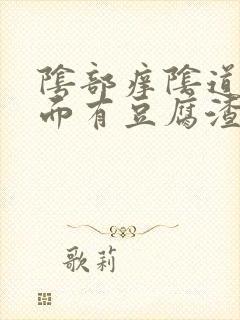 陰部痒陰道
而有豆腐渣
歌莉